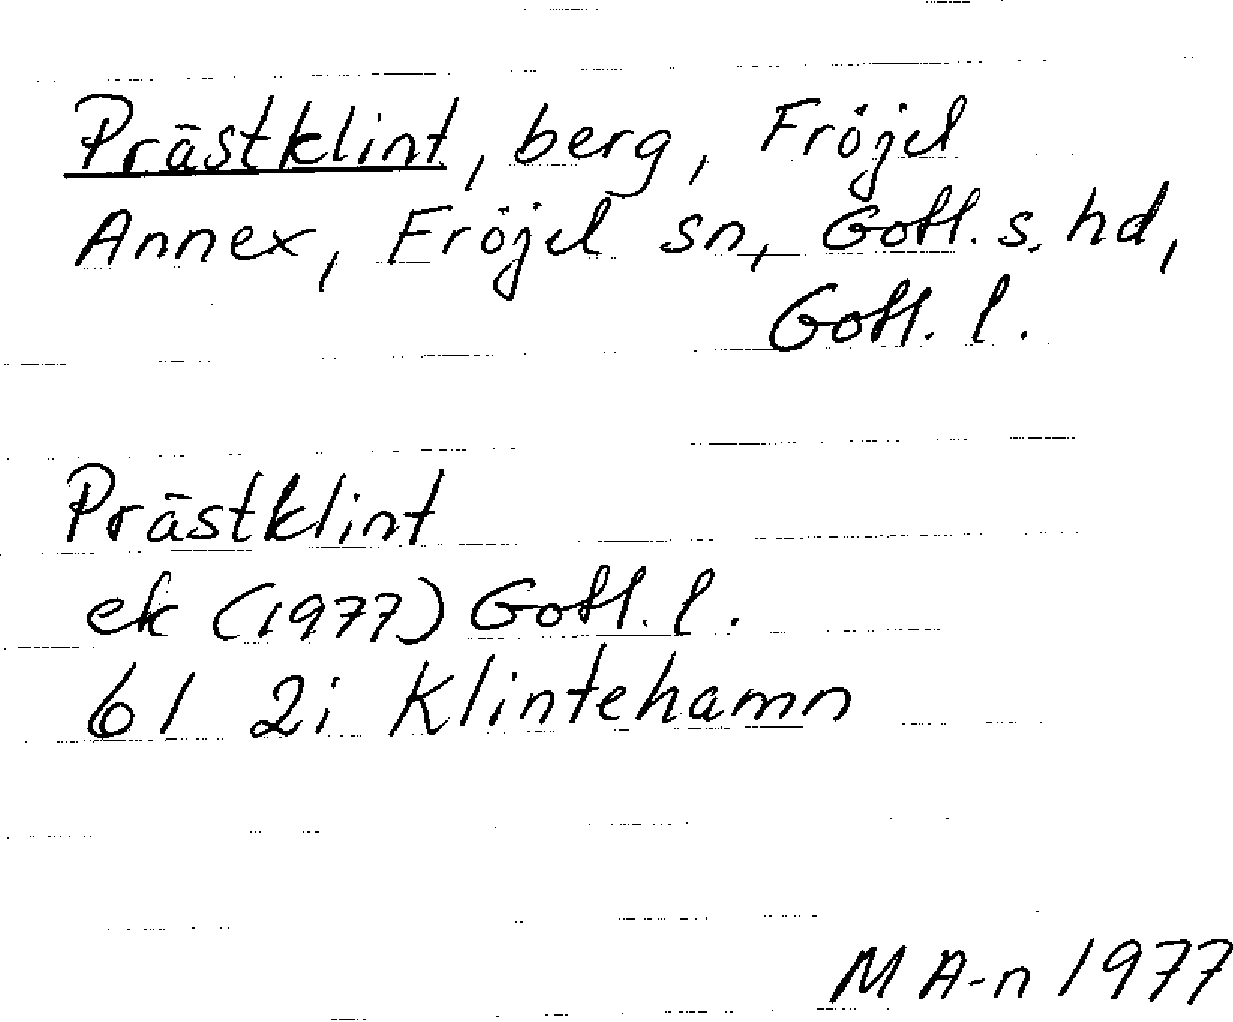 Prästklint, berg, Fröjel
Annex, Fröjel sn, Gotl. s. hd,
Gotl. l.
Prästklint
ek (1977) Gotl. l.
61 2i Klintehamn
M A-n 1977